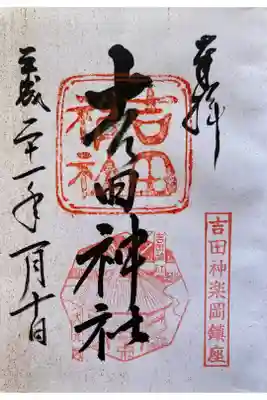 奉拝
吉田神楽岡鎮座
吉田神社
吉田神社
平成二十一年一月十日